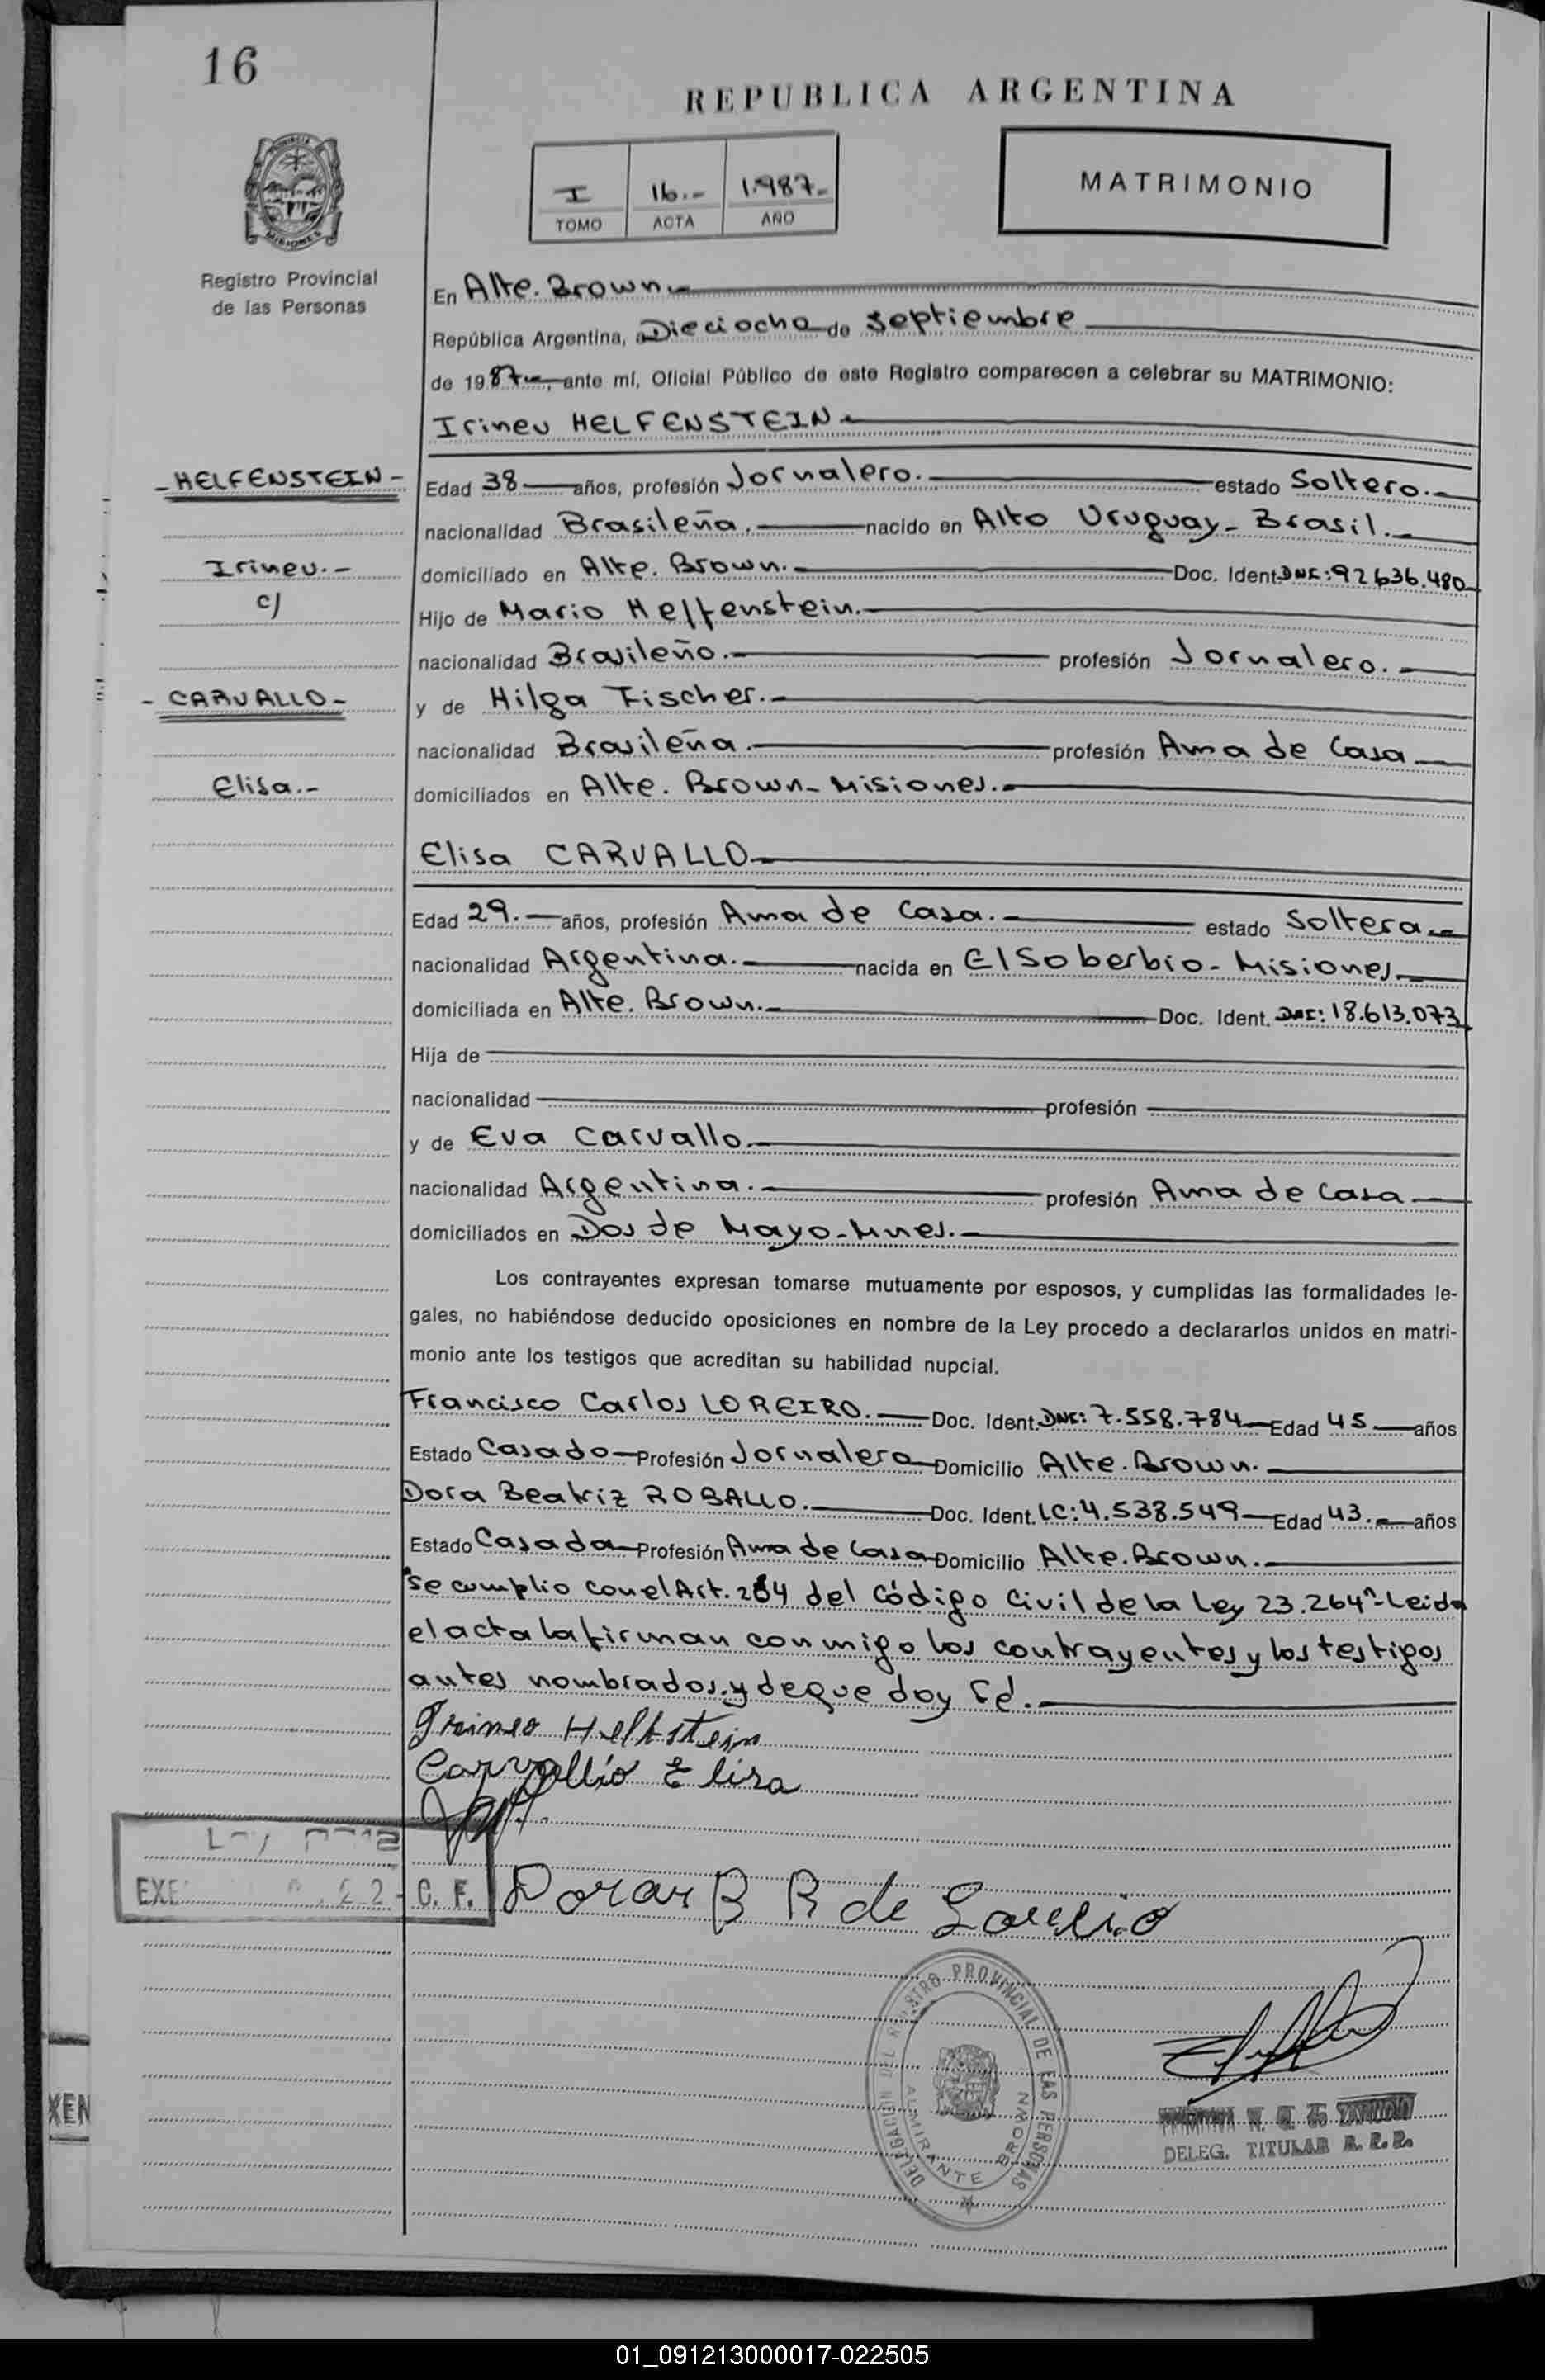 16
REPUBLICA ARGENTINA
I 16.- 1.987-
TOMO ACTA AÑO
MATRIMONIO
PROVINCIA
MISIONES
Registro Provincial
de las Personas
En Alte. Brown.-
República Argentina, a Dieciocho de Septiembre
de 1987.-, ante mí, Oficial Público de este Registro comparecen a celebrar su MATRIMONIO:
Irineu HELFENSTEIN.-
-HELFENSTEIN-
Edad 38 años, profesión Jornalero.- estado Soltero.-
nacionalidad Brasileña.- nacido en Alto Uruguay- Brasil.-
Irineu.-
domiciliado en Alte. Brown.- Doc. Ident. DNI: 92636.480
c/
Hijo de Mario Helfenstein.-
nacionalidad Brasileño.- profesión Jornalero.-
- CARVALLO -
y de Hilga Fischer.-
nacionalidad Brasileña.- profesión Ama de Casa
Elisa.-
domiciliados en Alte. Brown- Misiones.-
Elisa CARVALLO.-
Edad 29.- años, profesión Ama de Casa.- estado Soltera.-
nacionalidad Argentina.- nacida en El Soberbio- Misiones
domiciliada en Alte. Brown.- Doc. Ident. DNI: 18.613.073
Hija de
nacionalidad profesión
y de Eva Carvallo.-
nacionalidad Argentina.- profesión Ama de Casa
domiciliados en Dos de Mayo-Mnes.-
Los contrayentes expresan tomarse mutuamente por esposos, y cumplidas las formalidades le-
gales, no habiéndose deducido oposiciones en nombre de la Ley procedo a declararlos unidos en matri-
monio ante los testigos que acreditan su habilidad nupcial.
Francisco Carlos LOREIRO.- Doc. Ident. DNI: 7.558.784 Edad 45 años
Estado Casado Profesión Jornalero Domicilio Alte. Brown.-
Dora Beatriz ROBALLO.- Doc. Ident. LC: 4.538.549 Edad 43.- años
Estado Casada Profesión Ama de Casa Domicilio Alte. Brown.-
"Se cumplio con el Art. 264 del Código Civil de la Ley 23.264"- Leida
el acta la firman conmigo los contrayentes y los testigos
antes nombrados.y de que doy Fé.-
Irineo Helfstein
Carvallio Elisa
EXE 22- C. F.
Dorar B R de Loreiro
DELEGACION DEL REGISTRO PROVINCIAL DE LAS PERSONAS
ALMIRANTE BROWN
DELEG. TITULAR R. P. P.
XEN
01_091213000017-022505